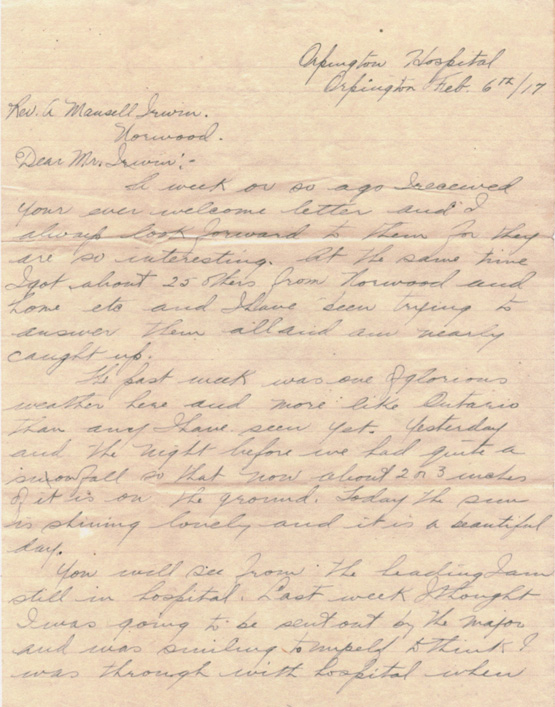 Orpington Hospital
Orpington Feb. 6th/17
Rev. A Mansell Irwin.
Norwood.
Dear Mr. Irwin:-
A week or so ago I received
your ever welcome letter and I
always look forward to them for they
are so interesting. At the same time
I got about 25 others from Norwood and
home etc and I have been trying to
answer them all and am nearly
caught up.
The past week was one of glorious
weather here and more like Ontario
than any I have seen yet. Yesterday
and the night before we had quite a
snowfall so that now about 2 or 3 inches
of it is on the ground. Today the sun
is shining lovely and it is a beautiful
day.
You will see from the heading I am
still in hospital. Last week I thought
I was going to be sent out by the major
and was smiling to myself to think I
was through with hospital when